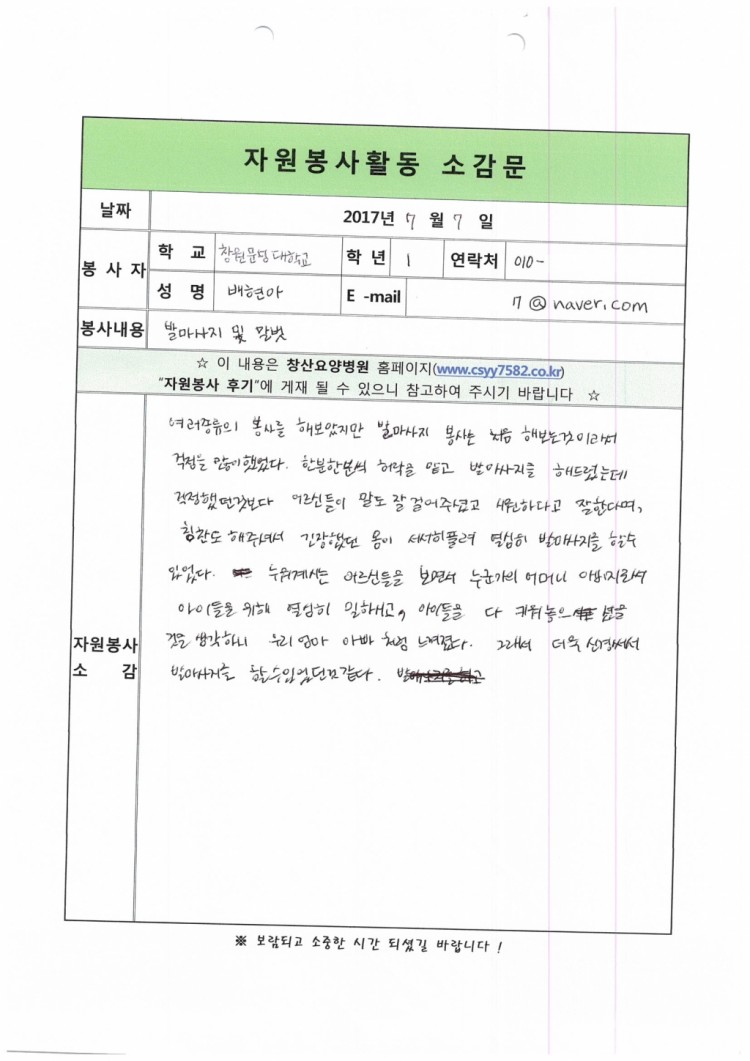 자원봉사활동 소감문
날짜 2017년 7 월 7 일
봉사자 학교 창원문성대학교 학년 1 연락처 010-
성명 배현아 E-mail 7@naver.com
봉사내용 발마사지 및 말벗
☆ 이 내용은 창산요양병원 홈페이지(www.csyy7582.co.kr)
"자원봉사 후기"에 게재 될 수 있으니 참고하여 주시기 바랍니다 ☆
자원봉사 소감
여러종류의 봉사를 해보았지만 발마사지 봉사는 처음 해보는것이라서
걱정을 많이했었다. 한분한분씩 허락을 맡고 발마사지를 해드렸는데
걱정했던것보다 어르신들이 말도 잘 걸어주셨고 시원하다고 잘한다며,
칭찬도 해주셔서 긴장했던 몸이 서서히풀려 열심히 발마사지를 할수
있었다. 누워계시는 어르신들을 보면서 누군가의 어머니 아버지로써
아이들을 위해 열심히 일하시고, 아이들을 다 키워놓으셨을
것을 생각하니 우리 엄마 아빠 처럼 느껴졌다. 그래서 더욱 신경써서
발마사지를 할수있었던것같다.
※ 보람되고 소중한 시간 되셨길 바랍니다 !